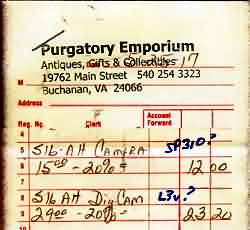 Purgatory Emporium
Antiques, Gifts & Collectibles
19762 Main Street 540 254 3323
Buchanan, VA 24066
Address
Reg. No. Clerk Account Forward
4
5 516-AH CAMERA SP310?
6 15.00 - 20% 12 00
7
8 516 AH DigCam L3v?
9 29.00 - 20% 23 20
10